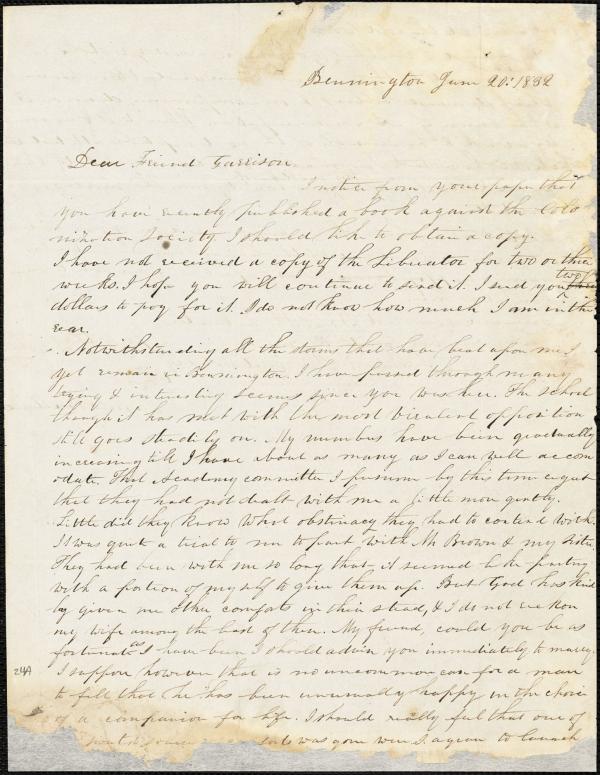 Bennington June 20: 1832
Dear Friend Garrison
I notice from your paper that
you have recently published a book against the Colo
nization Society I should like to obtain a copy.
I have not received a copy of the Liberator for two or three
weeks. I hope you will continue to send it. I send you two
dollars to pay for it. I do not know how much I am in the
rear.
Notwithstanding all the storms that have beat upon me I
yet remain in Bennington. I have passed through many
trying & interesting scenes since you was here. The school
though it has met with the most virulent opposition
still goes steadily on. My numbers have been gradually
increasing till I have about as many as I can well accom
odate. That Academy committee I presume by this time regret
that they had not dealt with me a little more gently.
Little did they know what obstinacy they had to contend with.
It was quite a trial to me to part with Mr Brown & my Sister
They had been with me so long that it seemed like parting
with a portion of myself to give them up. But God has kind
ly given me other comforts in their stead, & I do not reckon
my wife among the least of them. My friend, could you be as
fortunate as I have been I should advise you immediately to marry.
I suppose however that is no uncommon case for a man
to feel that he has been unusually happy in the choice
of a companion for life. I should really feel that one of
was gone were I again to launch
24A